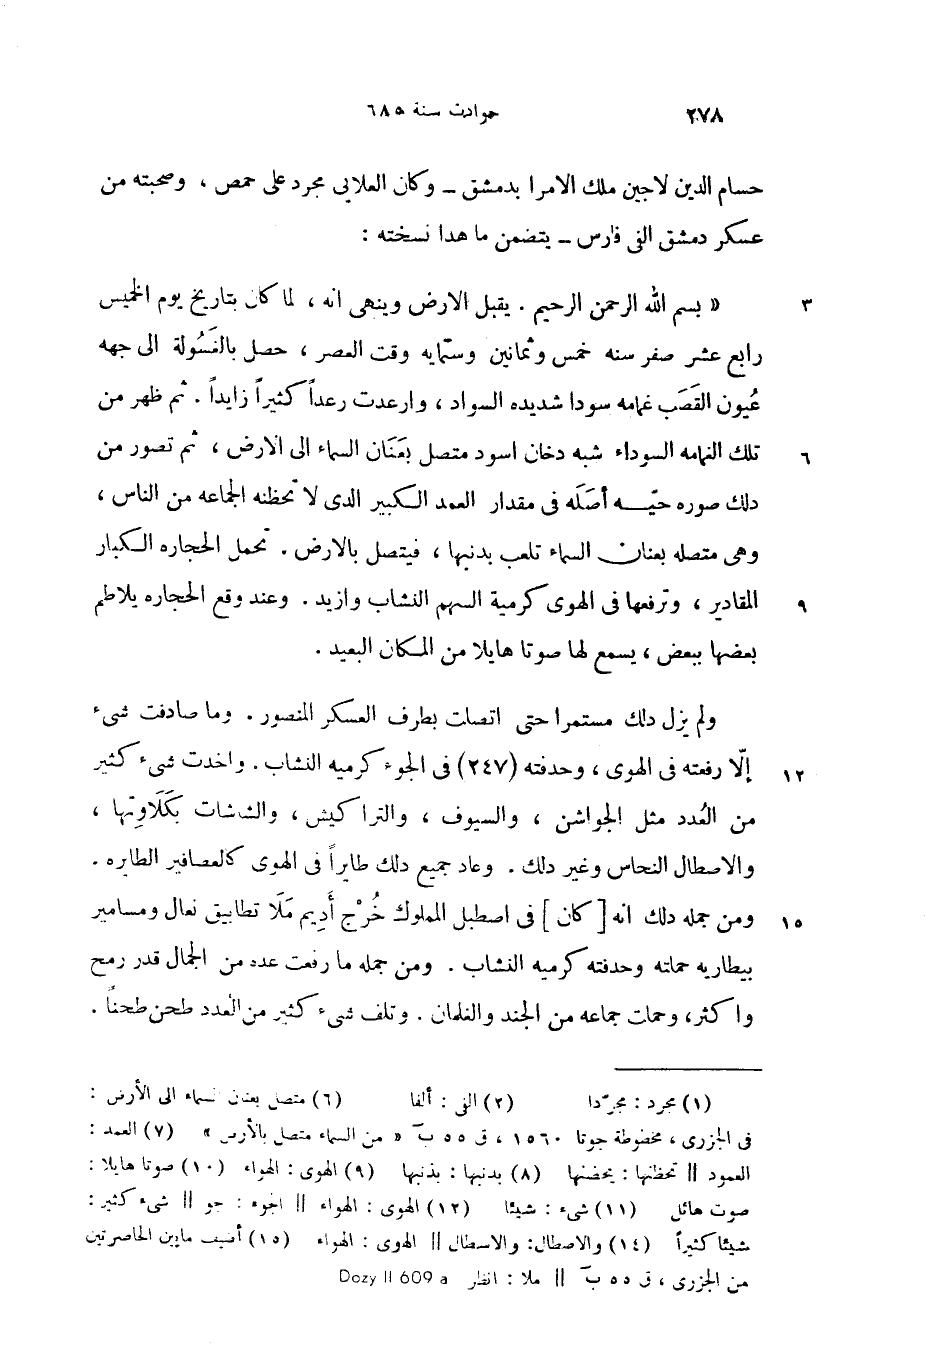 ٢٧٨ حوادث سنة ٦٨٥
حسام الدين لاجين ملك الامرا بدمشق ــ وكان العلابى مجرد على حمص ، وصحبته من
عسكر دمشق الفى فارس ــ يتضمن ما هدا نسخته :
٣ « بسم الله الرحمن الرحيم . يقبل الارض وينهى انه ، لما كان بتاريخ يوم الخميس
رابع عشر صفر سنه خمس وثمانين وستمايه وقت العصر ، حصل بالغَسُولة الى جهه
عُيون القَصَب غمامه سودا شديده السواد ، وارعدت رعداً كثيراً زايداً . ثم ظهر من
٦ تلك الغمامه السوداء شبه دخان اسود متصل بعَنَان السماء الى الارض ، ثم تصور من
دلك صوره حيّــه أصَلَه فى مقدار العمد الكبير الدى لا تحظنه الجماعه من الناس ،
وهى متصله بعنان السماء تلعب بدنبها ، فيتصل بالارض . تحمل الحجاره الكبار
٩ المقادير ، وترفعها فى الهوى كرمية السهم النشاب وازيد . وعند وقع الحجاره يلاطم
بعضها ببعض ، يسمع لها صوتا هايلا من المكان البعيد .
ولم يزل دلك مستمرا حتى اتصلت بطرف العسكر المنصور . وما صادفت شىء
١٢ إلّا رفعته فى الهوى ، وحدفته (٢٤٧) فى الجوء كرميه النشاب . واخدت شىء كثير
من العُدد مثل الجواشن ، والسيوف ، والتراكيش ، والشاشات بكَلَاوِتها ،
والاصطال النحاس وغير دلك . وعاد جميع دلك طايراً فى الهوى كالعصافير الطايره .
١٥ ومن جمله دلك انه [ كان ] فى اصطبل المملوك خُرْج أَدِيم مَلَا تطابيق نعال ومسامير
بيطاريه حملته وحدفته كرميه النشاب . ومن جمله ما رفعت عدد من الجمال قدر رمح
واكثر ، وحملت جماعه من الجند والغلمان . وتلف شىء كثير من العُدد طحن طحناً .
(١) مجرد : مجرّدا (٢) الفى : ألفا (٦) متصل بعنان السماء الى الأرض :
فى الجزرى ، مخطوطة جوتا ١٥٦٠ ، ق ٥٥ ب « من السماء متصل بالأرض » (٧) العمد :
العمود || تحظنها : يحضنها (٨) بدنبها : بذنبها (٩) الهوى : الهواء (١٠) صوتا هايلا :
صوت هائل (١١) شىء : شيئا (١٢) الهوى : الهواء || الجوء : جو || شىء كثير :
شيئا كثيراً (١٤) والاصطال: والاسطال || الهوى : الهواء (١٥) أضيف مابين الحاصرتين
من الجزرى ، ق ٥٥ ب || ملا : انظر Dozy II 609 a